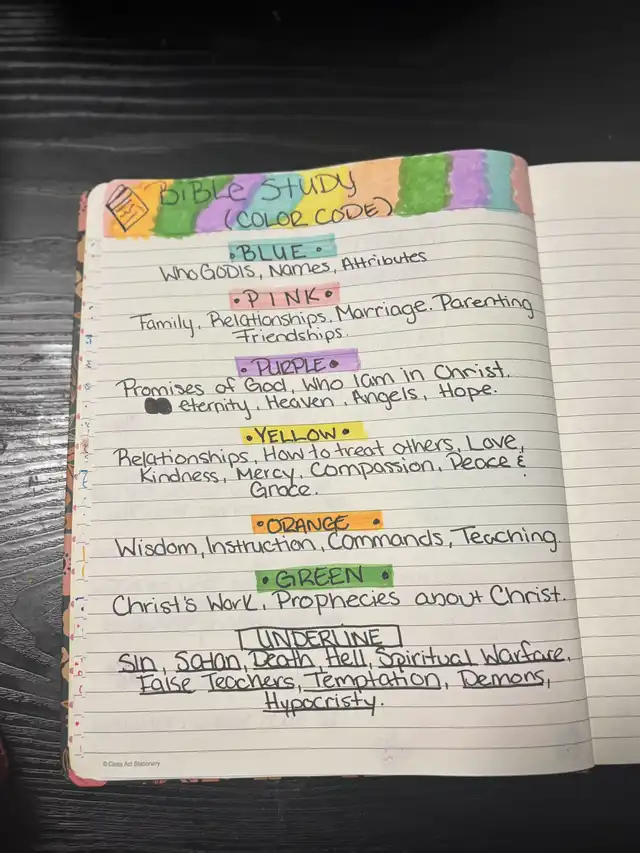 BIBLE STUDY
(COLOR CODE)
•BLUE•
Who GOD IS, Names, Attributes
•PINK•
Family, Relationships, Marriage, Parenting
Friendships.
•PURPLE•
Promises of God, Who I am in Christ,
eternity, Heaven, Angels, Hope.
•YELLOW•
Relationships, How to treat others, Love,
Kindness, Mercy, Compassion, Peace &
Grace.
•ORANGE•
Wisdom, Instruction, Commands, Teaching.
•GREEN•
Christ's Work, Prophecies about Christ.
UNDERLINE
Sin, Satan, Death, Hell, Spiritual Warfare,
False Teachers, Temptation, Demons,
Hypocristy.
© Class Act Stationery